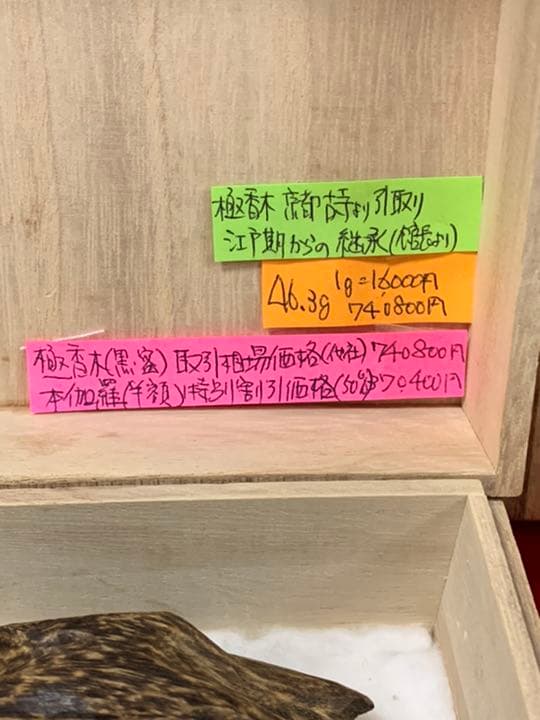 極香木 京都古寺より引取り
江戸期からの継承(館長より)
46.3g 1g=16000円
740800円
極香木(黒蜜)取引相場価格(他社)740800円
本伽羅(半額)特別割引価格(50%)370,400円